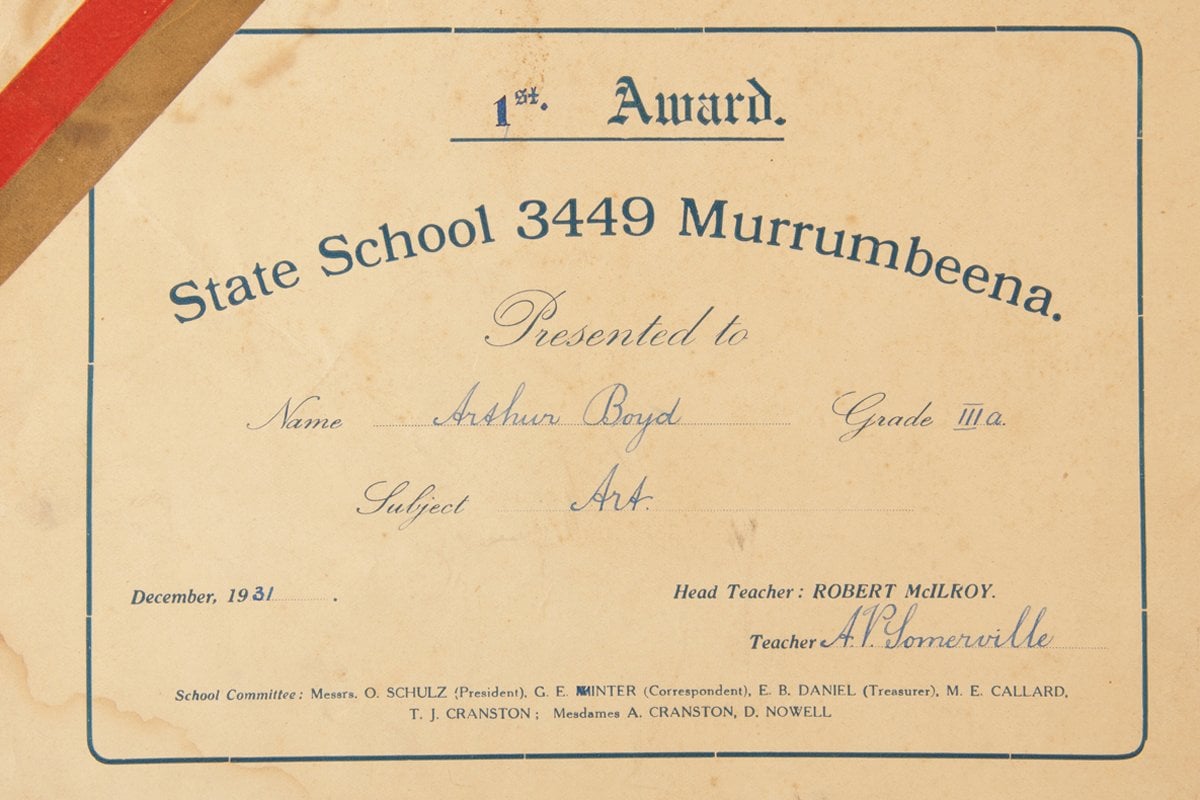 1st. Award.
State School 3449 Murrumbeena.
Presented to
Name Arthur Boyd Grade IIIa.
Subject Art.
December, 1931 .
Head Teacher: ROBERT McILROY.
Teacher A.V. Somerville
School Committee: Messrs. O. SCHULZ (President), G. E. MINTER (Correspondent), E. B. DANIEL (Treasurer), M. E. CALLARD,
T. J. CRANSTON; Mesdames A. CRANSTON, D. NOWELL